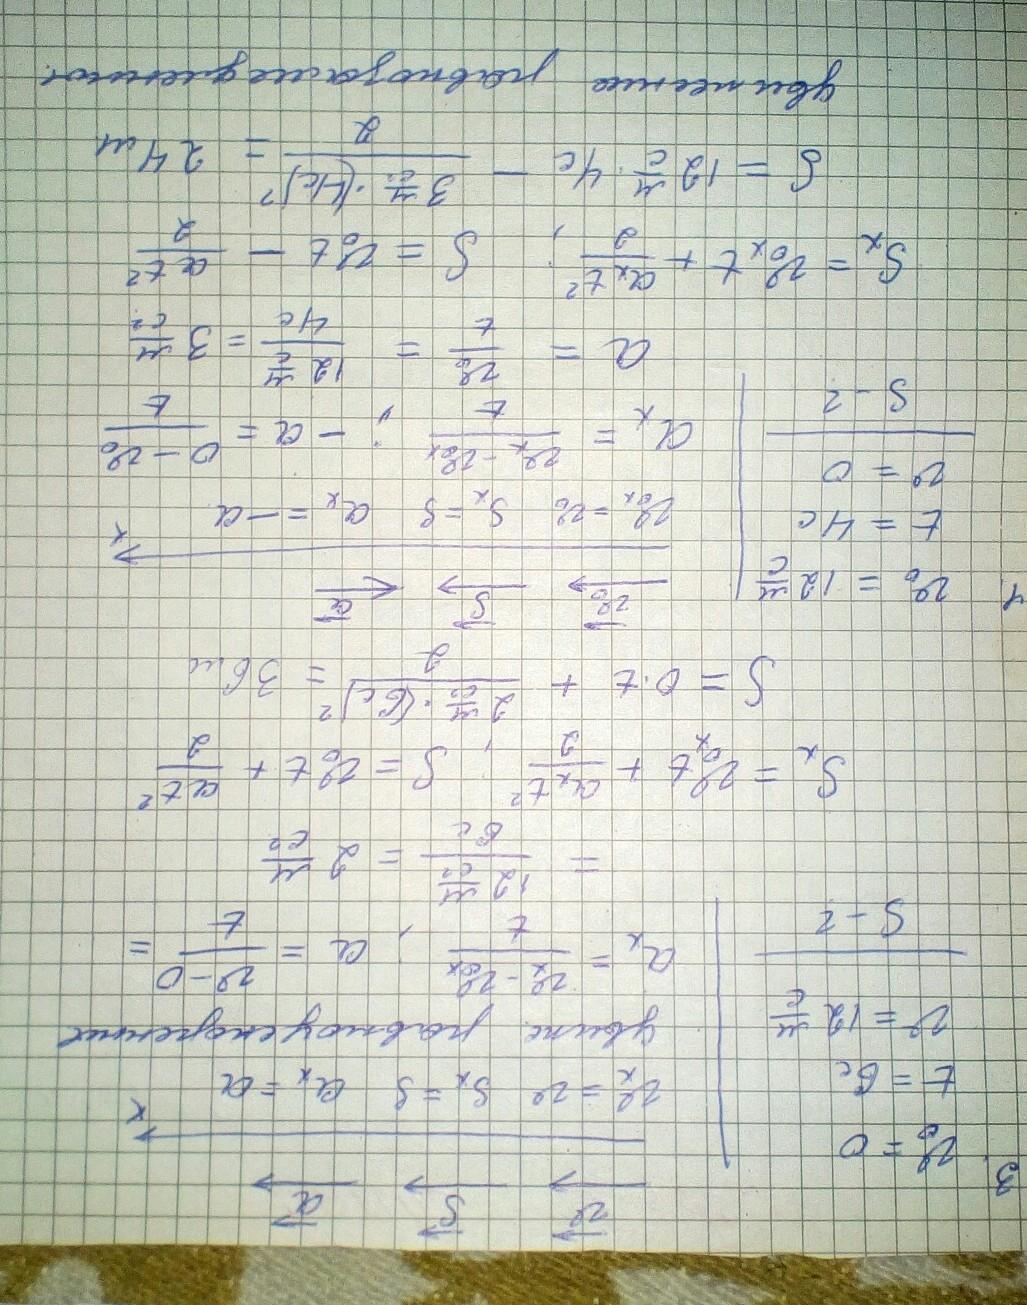 3.
v₀ = 0
t = 6с
v = 12 м/с
S - ?
v⃗ S⃗ a⃗
x
vₓ = v Sₓ = S aₓ = a
движ. равноускоренное
aₓ = (vₓ - v₀ₓ)/t ; a = (v - 0)/t =
= (12 м/с²)/(6с) = 2 м/с²
Sₓ = v₀ₓt + aₓt²/2 ; S = v₀t + at²/2
S = 0·t + (2 м/с² · (6с)²)/2 = 36м
4.
v₀ = 12 м/с
t = 4с
v = 0
S - ?
v⃗₀ S⃗ a⃗
x
v₀ₓ = v₀ Sₓ = S aₓ = -a
aₓ = (vₓ - v₀ₓ)/t ; -a = (0 - v₀)/t
a = v₀/t = (12 м/с)/(4с) = 3 м/с²
Sₓ = v₀ₓt + aₓt²/2 ; S = v₀t - at²/2
S = 12 м/с · 4с - (3 м/с² · (4с)²)/2 = 24м
движение равнозамедленное